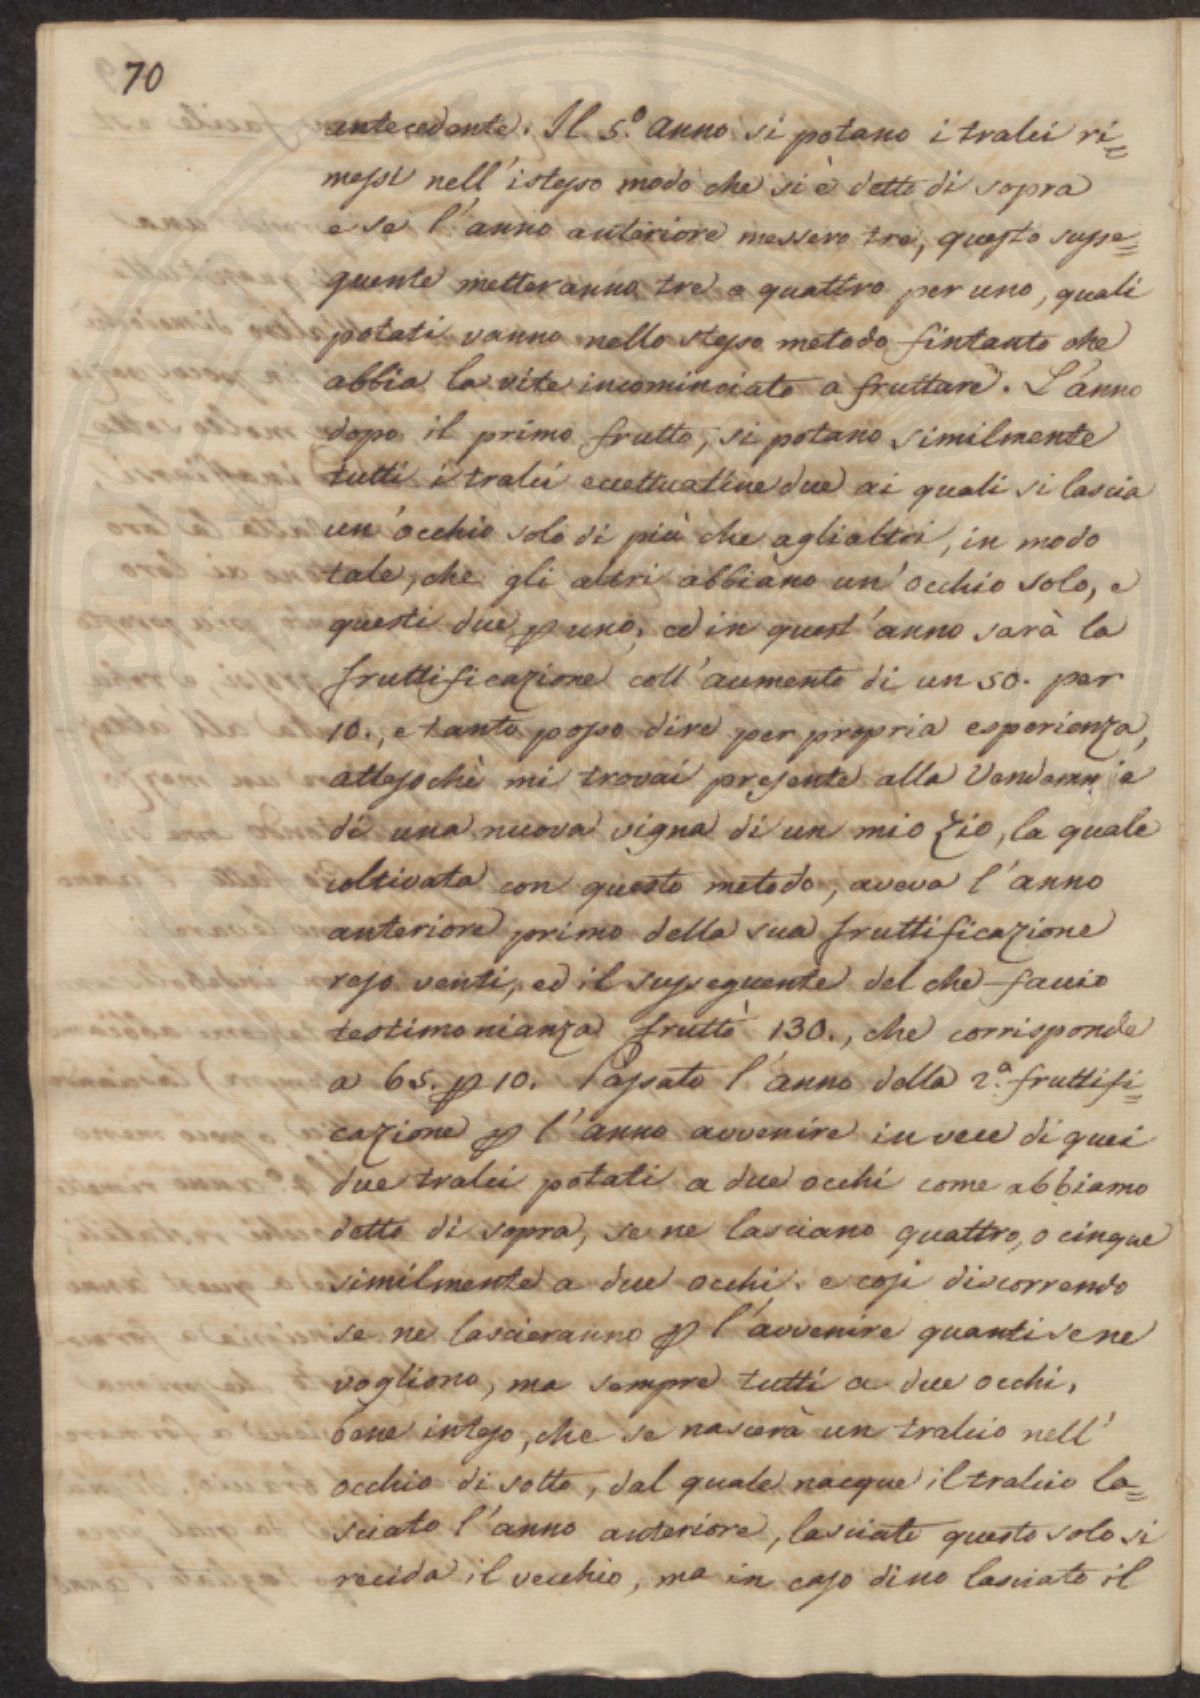 70
antecedente. Il 5.º anno si potano i tralci ri=
messi nell'istesso modo che si è detto di sopra
e se l'anno anteriore messero tre, questo susse=
guente metteranno tre o quattro per uno, quali
potati vanno nello stesso metodo fintanto che
abbia la vite incominciato a fruttare. L'anno
dopo il primo frutto, si potano similmente
tutti i tralci eccettuatine due ai quali si lascia
un'occhio solo di più che agli altri, in modo
tale, che gli altri abbiano un'occhio solo, e
questi due p uno, ed in quest'anno sarà la
fruttificazione coll'aumento di un 50. per
10., e tanto posso dire per propria esperienza,
attesochè mi trovai presente alla Vendemmia
di una nuova vigna di un mio Zio, la quale
coltivata con questo metodo, aveva l'anno
anteriore primo della sua fruttificazione
reso venti, ed il susseguente del che faccio
testimonianza fruttò 130., che corrisponde
a 65. p 10. Passato l'anno della 2.ª fruttifi=
cazione p l'anno avvenire in vece di quei
due tralci potati a due occhi come abbiamo
detto di sopra, se ne lasciano quattro, o cinque
similmente a due occhi. e così discorrendo
se ne lascieranno p l'avvenire quanti se ne
vogliono, ma sempre tutti a due occhi,
bene inteso, che se nascerà un tralcio nell'
occhio di sotto, dal quale nacque il tralcio la=
sciato l'anno anteriore, lasciato questo solo si
recida il vecchio, ma in caso di no lasciato il